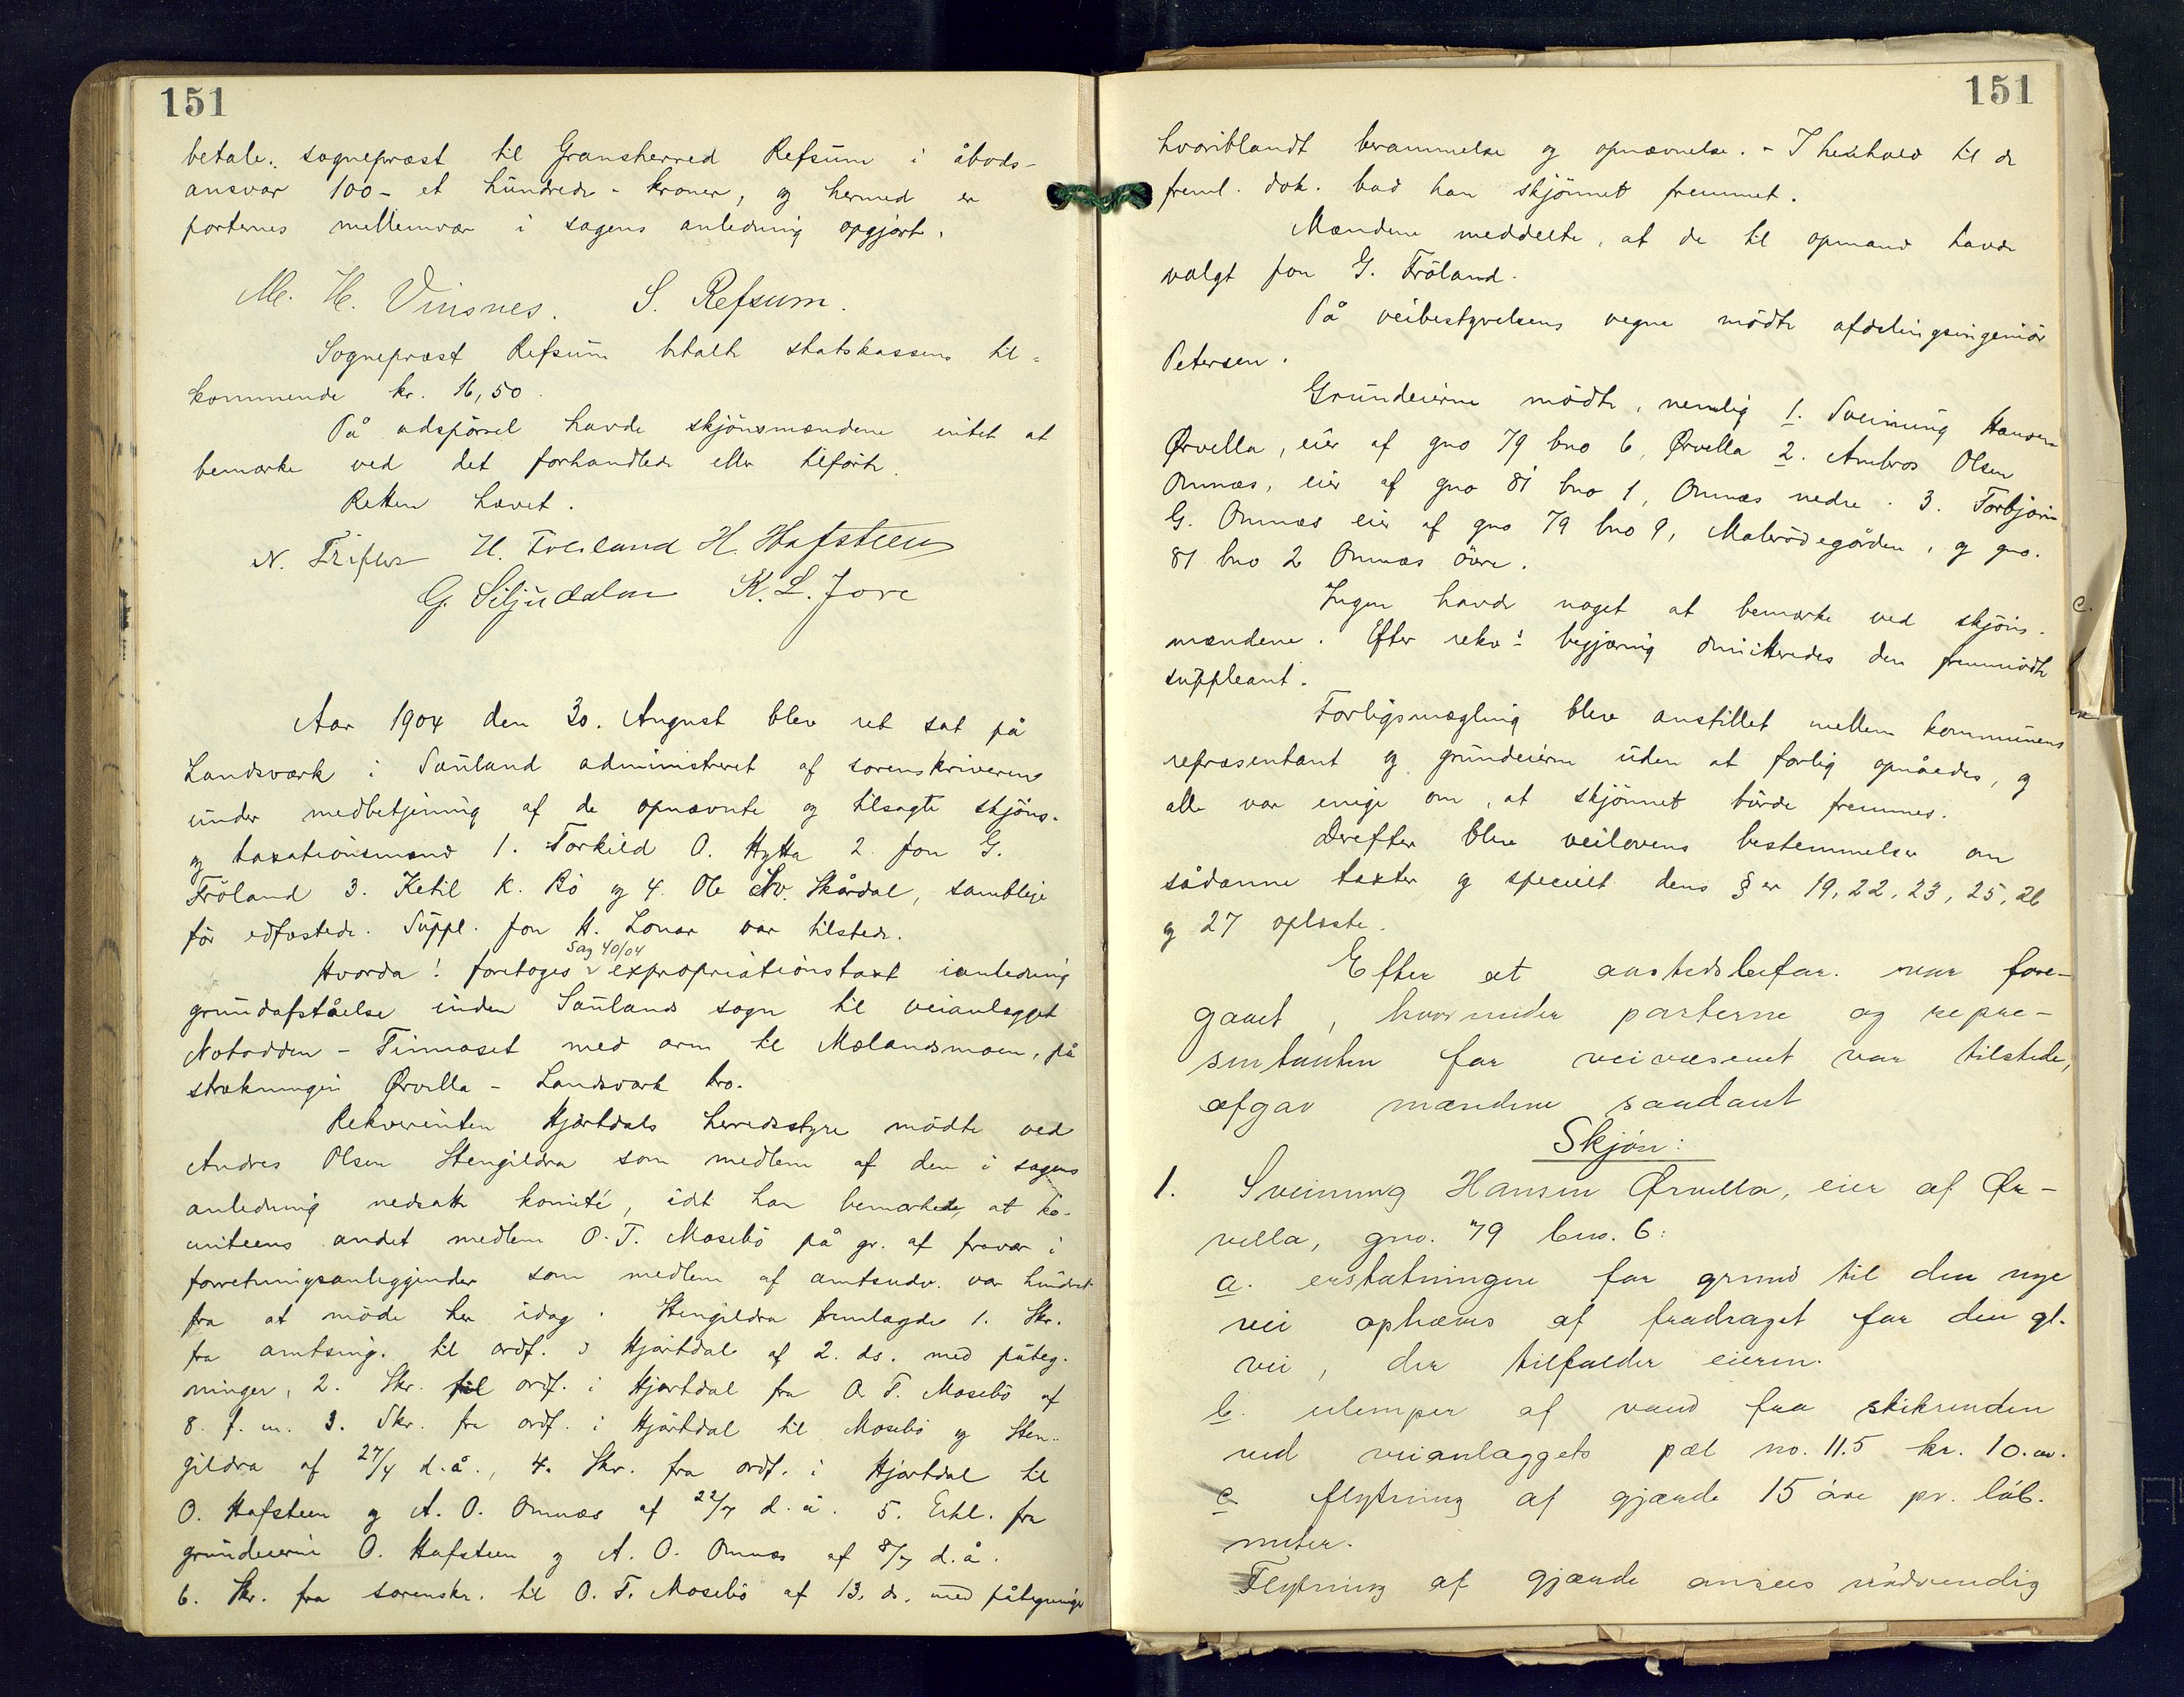 151
betale: sognepræst til Gransherred Refsum i åbods-
ansvar 100 - et hundrede - kroner, og hermed er
parternes mellemvær i sagens anledning opgjort.
M. H. Vinsnes. S. Refsum.
Sognepræst Refsum betalte statskassens til-
kommende kr. 16,50.
På adspørsel havde skjønsmændene intet at
bemærke ved det forhandlede eller tilførte.
Retten hævet.
N. Tripler H. Froland H. Hafsteen
G. Siljudalen K. L. Jore
Aar 1904 den 30. August blev ret sat på
Landsværk i Sauland administreret af sorenskriveren
under medbetjening af de opnævnte og tilsagte skjøns-
og taxationsmænd 1. Torkild O. Hytta 2. Jon G.
Frøland 3. Ketil K. Bø og 4. Ole Hv. Skårdal, samtlige
før edfæstede. Suppl. Jon H. Lonar var tilstede.
Sag 40/04
Hvorda! foretoges expropriationstaxt ianledning
grundafståelse inden Saulands sogn til veianlægget
Notodden - Tinnoset med arm til Mælandsmoen, på
strækningen Ørvella - Landsværk bro.
Rekvirenten Hjartdals herredsstyre mødte ved
Andres Olsen Stengildra som medlem af den i sagens
anledning nedsatte komité, idt han bemærkede, at ko-
miteens andet medlem O. T. Mosebø på gr. af fravær i
forretningsanliggender som medlem af amtsudv. var hindret
fra at møde her idag. Stengildra fremlagde 1. Skr.
fra amtsing. til ordf. i Hjartdal af 2. ds. med påteg-
ninger, 2. Skr. til ordf. i Hjartdal fra O. T. Mosebø af
8. f. m. 3. Skr. fra ordf. i Hjartdal til Mosebø og Sten-
gildra af 27/4 d. å., 4. Skr. fra ordf. i Hjartdal til
O. Hafsteen og A. O. Omnæs af 22/7 d. å. 5. Erkl. fra
grundeierne O. Hafsteen og A. O. Omnæs af 8/7 d. å.
6. Skr. fra sorenskr. til O. T. Mosebø af 13. ds. med påtegninger
151
hvoriblandt berammelse og opnævnelse. - I henhold til de
freml. dok. bad han skjønnet fremmet.
Mændene meddelte, at de til opmand havde
valgt Jon G. Frøland.
På veibestyrelsens vegne mødte afdelingsingeniør
Petersen.
Grundeierne mødte, nemlig 1. Sveinung Hansen
Ørvella, eier af gno 79 bno 6, Ørvella 2. Ambros Olsen
Omnæs, eier af gno 81 bno 1, Omnæs nedre. 3. Torbjørn
G. Omnæs eier af gno 79 bno 9, og gno.
81 bno 2 Omnæs øvre.
Ingen havde noget at bemærke ved skjøns-
mændene. Efter rekv's begjæring dimitteredes den fremmødte
suppleant.
Forligsmægling blev anstillet mellem kommunens
repræsentant og grundeierne uden at forlig opnåedes, og
alle var enige om, at skjønnet burde fremmes.
Derefter blev veilovens bestemmelser om
sådanne taxter og specielt dens §er 19, 22, 23, 25, 26
og 27 oplæste.
Efter at aastedsbefar. var fore-
gaaet, hvorunder parterne og repræ-
sentanten for veivæsenet var tilstede,
afgav mændene saadant
Skjøn:
1. Sveinung Hansen Ørvella, eier af Ør-
vella, gno. 79 bno. 6:
a. erstatningen for grund til den nye
vei ophæves af fradraget for den gl.
vei, der tilfalder eieren.
b. ulemper af vand fra stikrenden
ved veianlæggets pæl no. 115 kr. 10.00.
c flytning af gjærde 15 øre pr. løb.
meter.
Flytning af gjærde ansees nødvendig